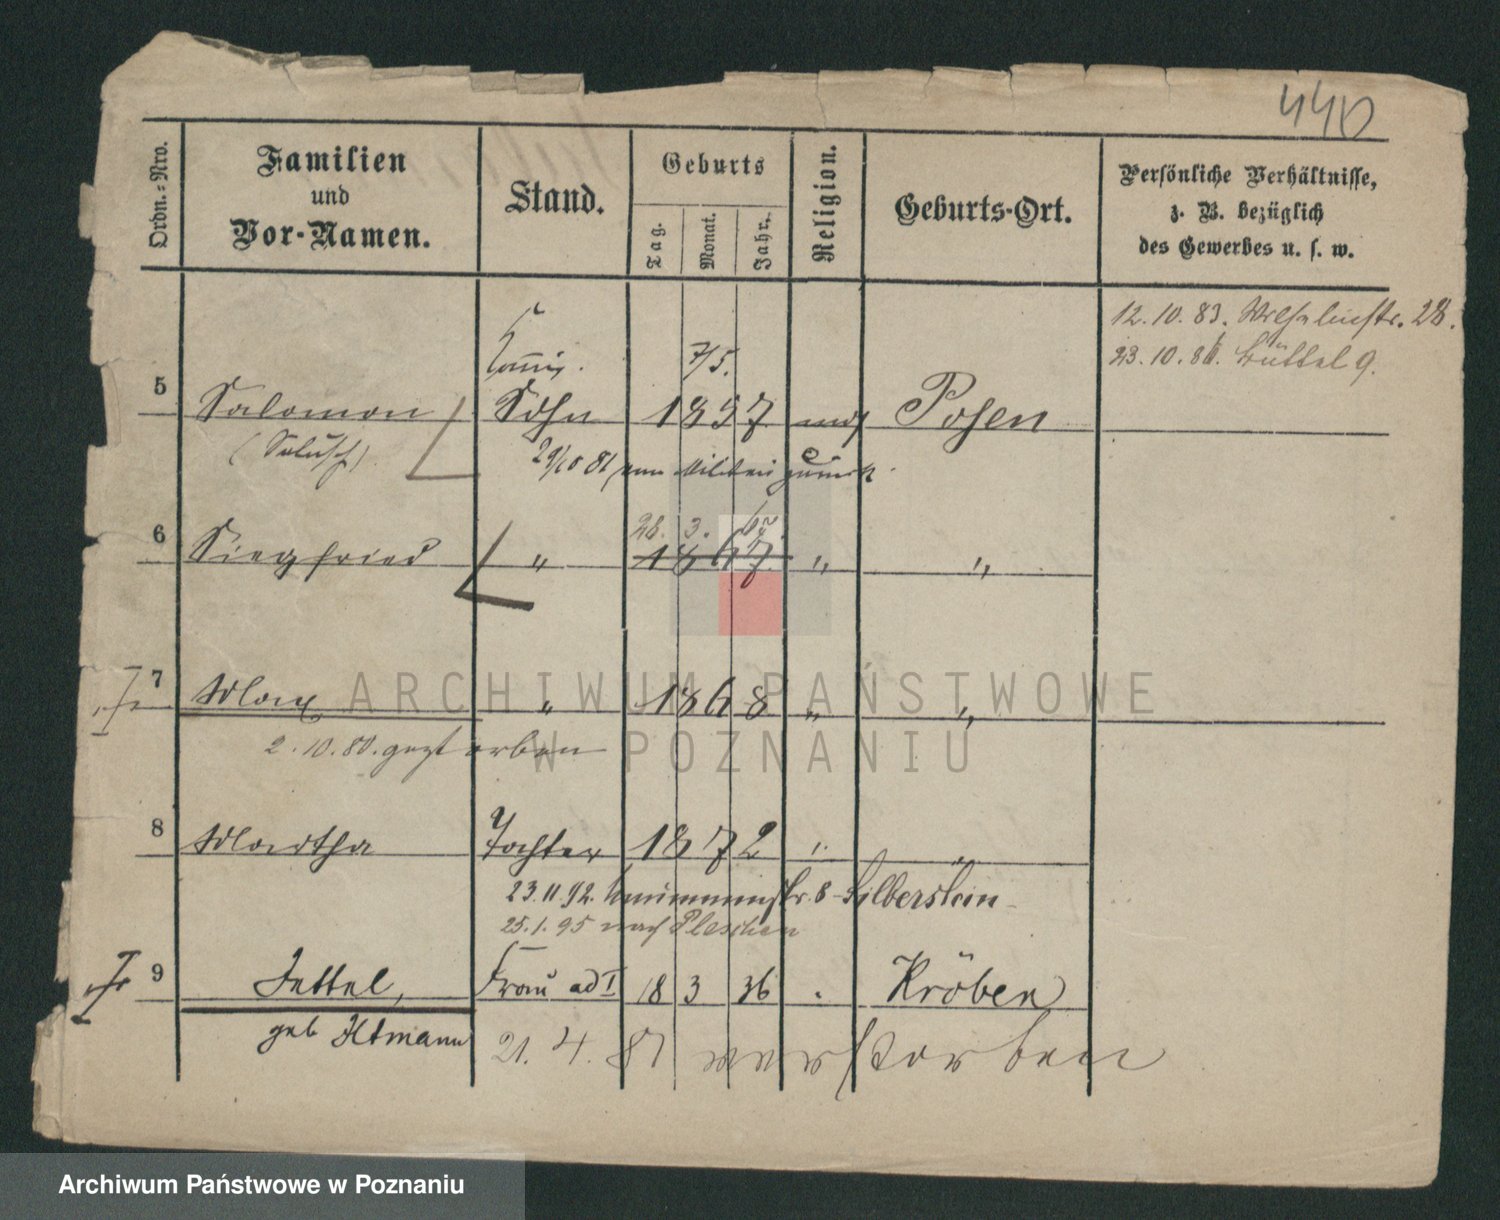 440
Ordn.-Nro.
Familien
und
Vor-Namen.
Stand.
Geburts
Tag.
Monat.
Jahr.
Religion.
Geburts-Ort.
Persönliche Verhältnisse,
z. B. bezüglich
des Gewerbes u. s. w.
12. 10. 83. 28.
23. 10. 86. Büttel 9.
7/5.
5 Salomon Sohn 1857 mos Posen
(Salusch) 29/10 81 vom Militair zurück.
28. 3. 67
6 Siegfried " 1867 " "
7 Max " 1868 " "
2. 10. 80. gestorben
8 Martha Tochter 1872 " "
23. 11. 92. 8 Silberstein
25. 1. 95 nach Pleschen
9 Jettel, Frau ad I 18 3 36 " Kröben
geb Altmann 21. 4. 81 verstorben
ARCHIWUM PAŃSTWOWE
W POZNANIU
Archiwum Państwowe w Poznaniu